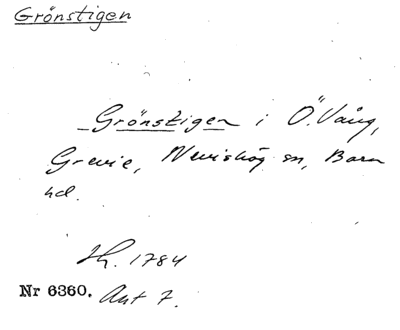 Grönstigen
Grönstigen i Ö. Vång,
Grevie, Nevishög sn, Bara
hd.
Sk. 1784
Nr 6360. Akt 7.